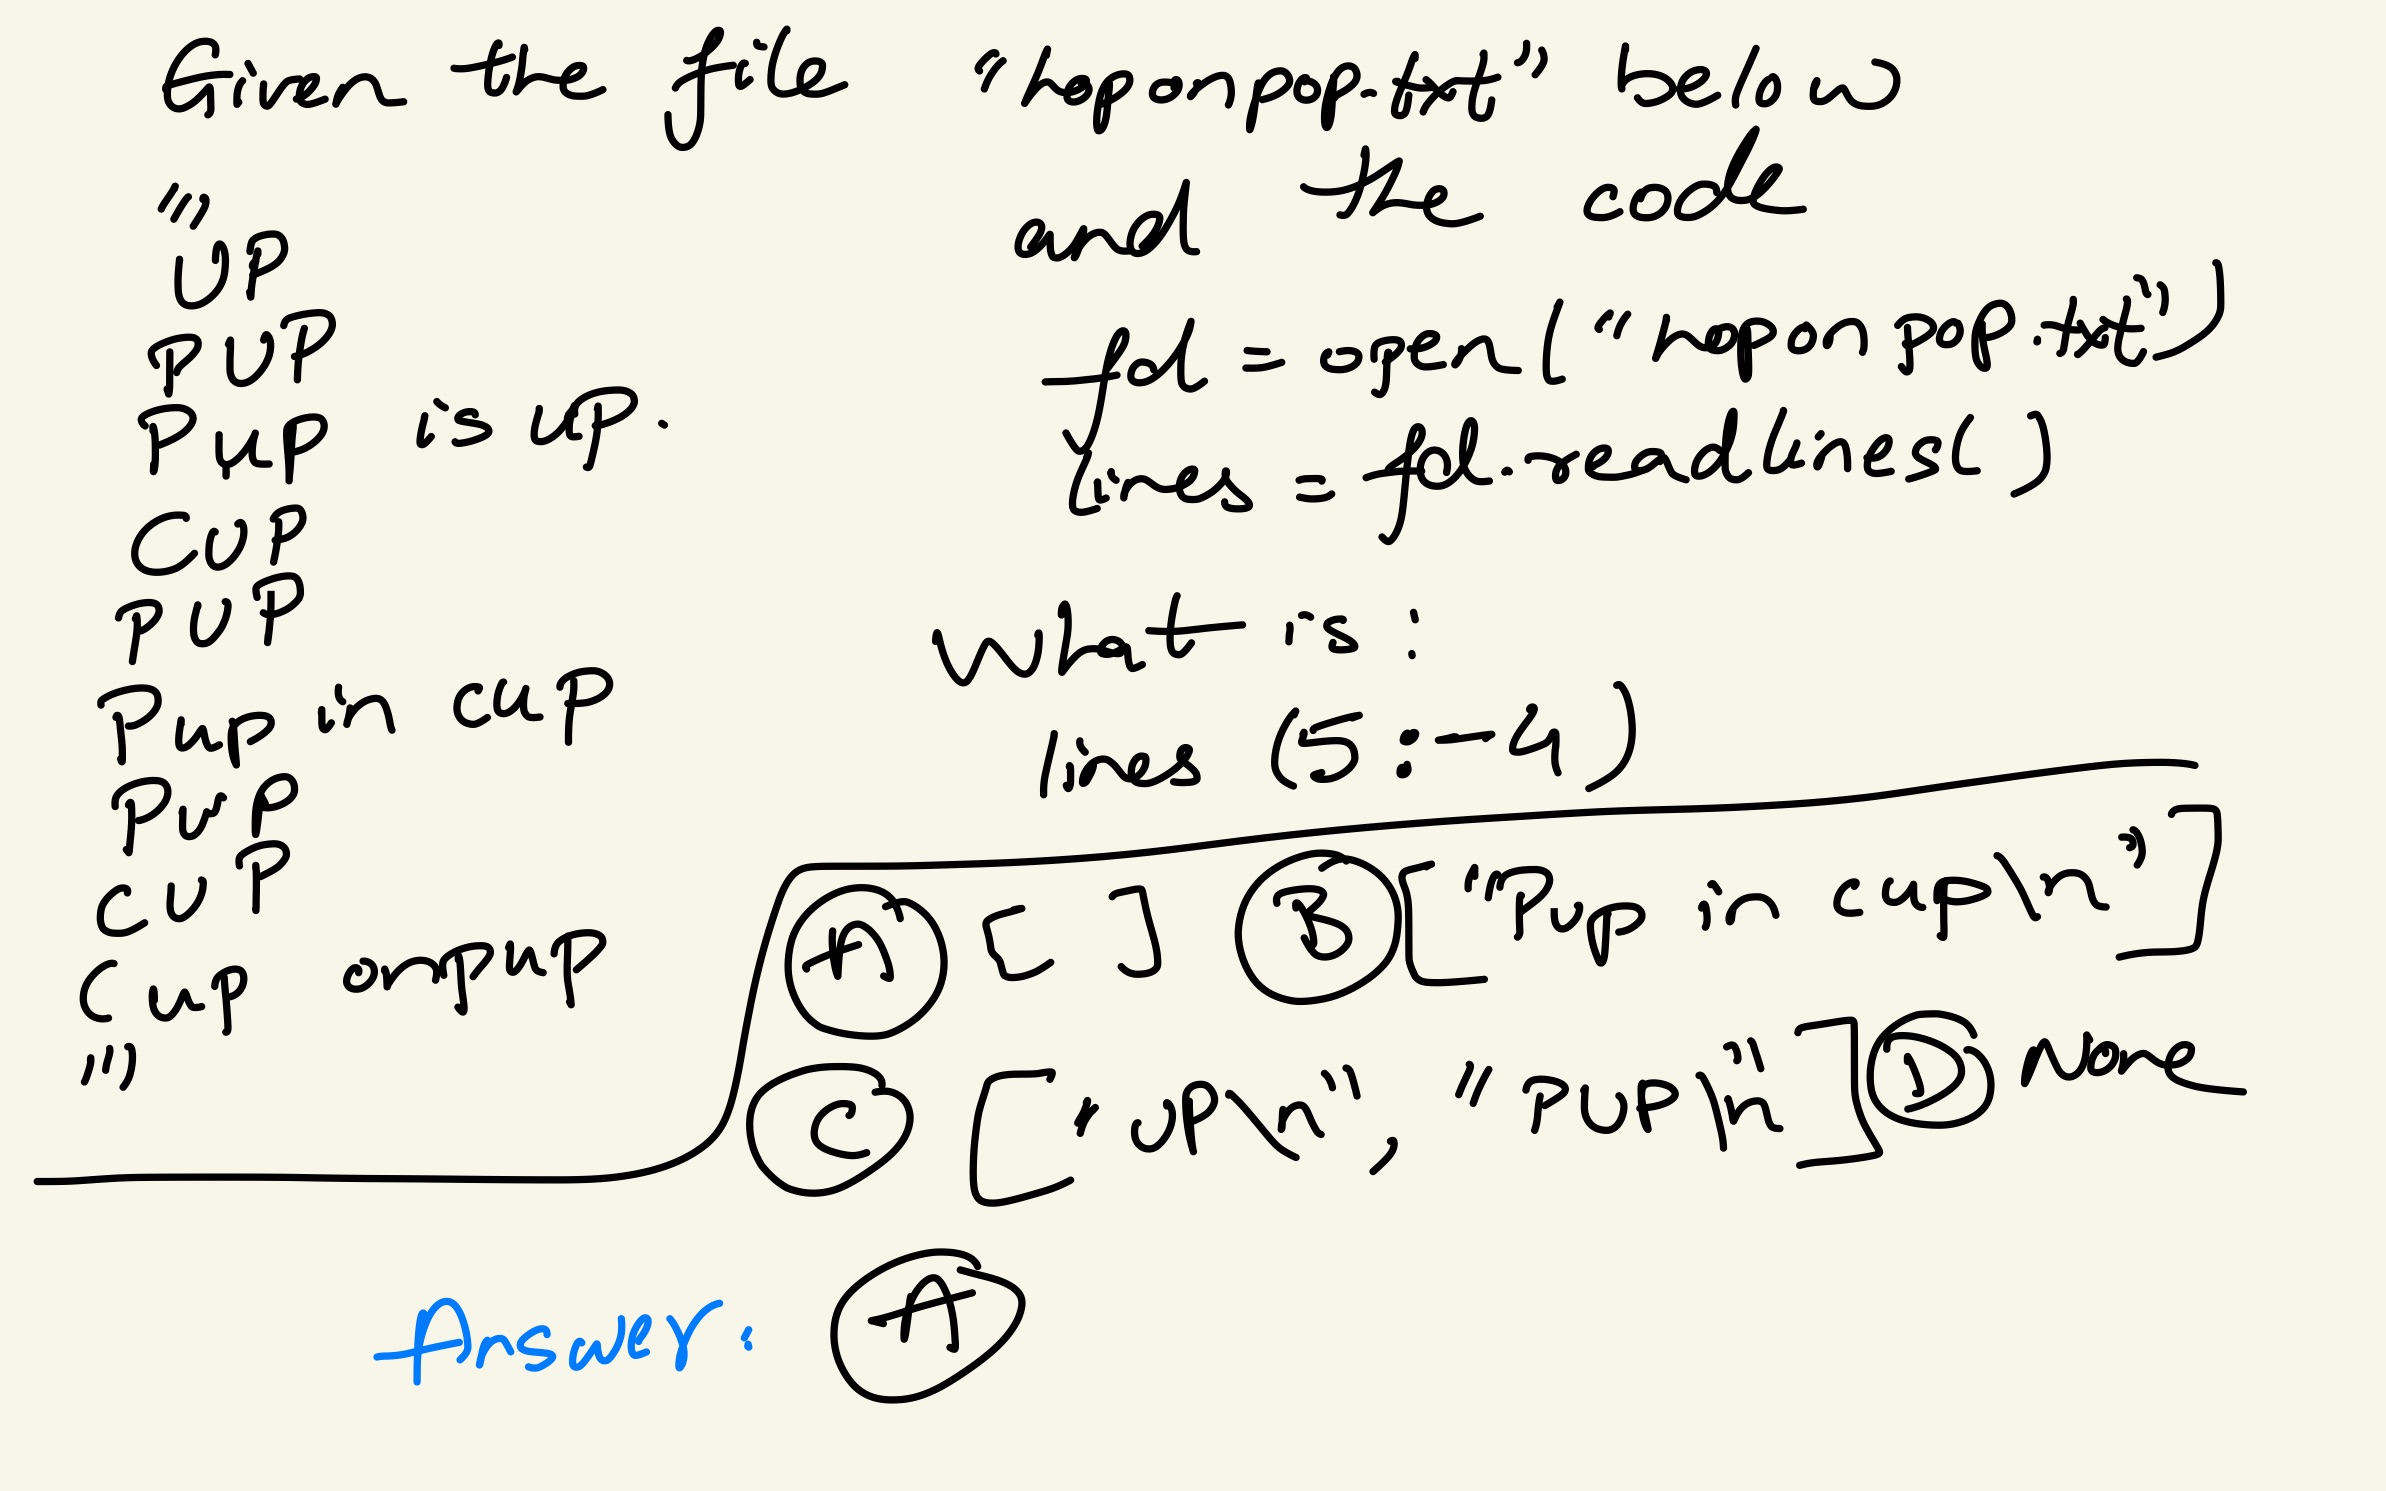 Given the file "hoponpop.txt" below
and the code
"""
UP
PUP
Pup is up.
CUP
PUP
Pup in cup
PUP
CUP
Cup on pup
"""
fd = open("hoponpop.txt")
lines = fd.readlines()
What is :
lines (5:-4)
A [ ] B ["Pup in cup\n"]
C ["UP\n", "PUP\n"] D None
Answer: A